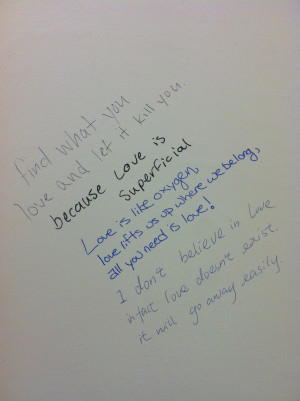 find what you
love and let it kill you.
because Love is
Superficial
Love is like oxygen,
love lifts us up where we belong,
all you need is love!
I don't believe in Love
infact love doesn't exist.
it will go away easily.